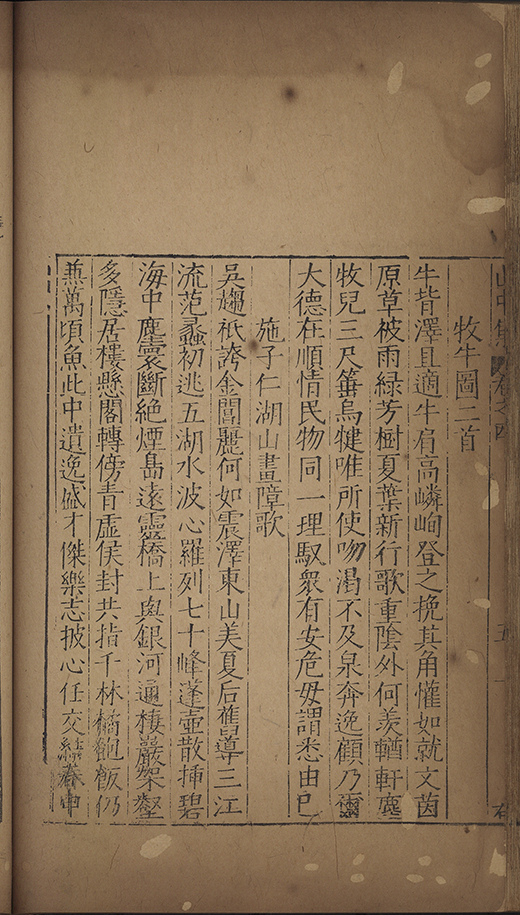 山中集卷之四
牧牛圖二首
牛背澤且適牛肩高嶙峋登之挽其角懽如就文茵
原草被雨緑芳樹夏葉新行歌重陰外何羡輶軒塵
牧兒三尺箠烏犍唯所使吻渴不及泉奔逸顧乃爾
大德在順情民物同一理馭衆有安危毋謂悉由已
施子仁湖山畫障歌
吳趨祇誇金閶麗何如震澤東山美夏后舊導三江
流范蠡初逃五湖水波心羅列七十峰蓬壺散揷碧
海中塵囊斷絶煙島遠靈橋上與銀河通棲巖架壑
多隱居樓懸閣轉傍青虛侯封共指千林橘飽飯仍
兼萬頃魚此中遺逸盛才傑樂志披心任交結春申